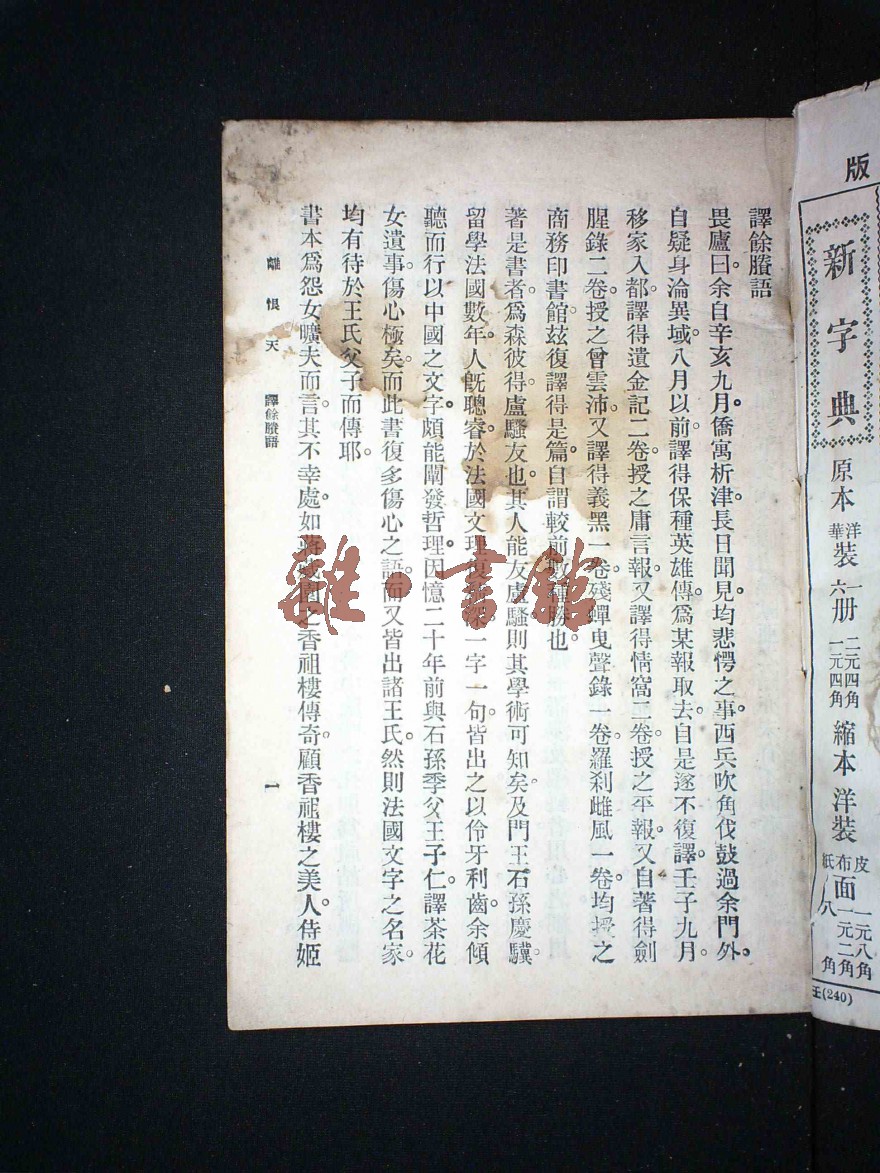 譯餘賸語
畏廬曰。余自辛亥九月。僑寓析津。長日聞見。均悲愕之事。西兵吹角伐鼓過余門外。
自疑身淪異域。八月以前。譯得保種英雄傳。爲某報取去。自是遂不復譯。壬子九月。
移家入都。譯得遺金記二卷。授之庸言報。又譯得情窩二卷。授之平報。又自著得劍
腥錄二卷。授之曾雲沛。又譯得義黑一卷。殘蟬曳聲錄一卷。羅刹雌風一卷。均授之
商務印書館。玆復譯得是篇。自謂較前數種勝也
著是書者。爲森彼得盧騷友也。其人能友盧騷。則其學術可知矣。及門王石孫慶驥。
留學法國數年。人旣聰睿。於法國文理復精深。一字一句。皆出之以伶牙利齒。余傾
聽而行以中國之文字。頗能闡發哲理。因憶二十年前與石孫季父王子仁。譯茶花
女遺事。傷心極矣。而此書復多傷心之語。而又皆出諸王氏。然則法國文字之名家。
均有待於王氏父子而傳耶。
書本爲怨女曠夫而言。其不幸處。如蔣藏園之香祖樓傳奇。顧香祖樓之美人侍姬
離恨天 譯餘賸語 一
雜·書館
版
新字典
原本
洋華裝
一六册
二元四角
一元四角
縮本
洋裝
皮布紙面
一元八角
一元二角
八角
王(240)